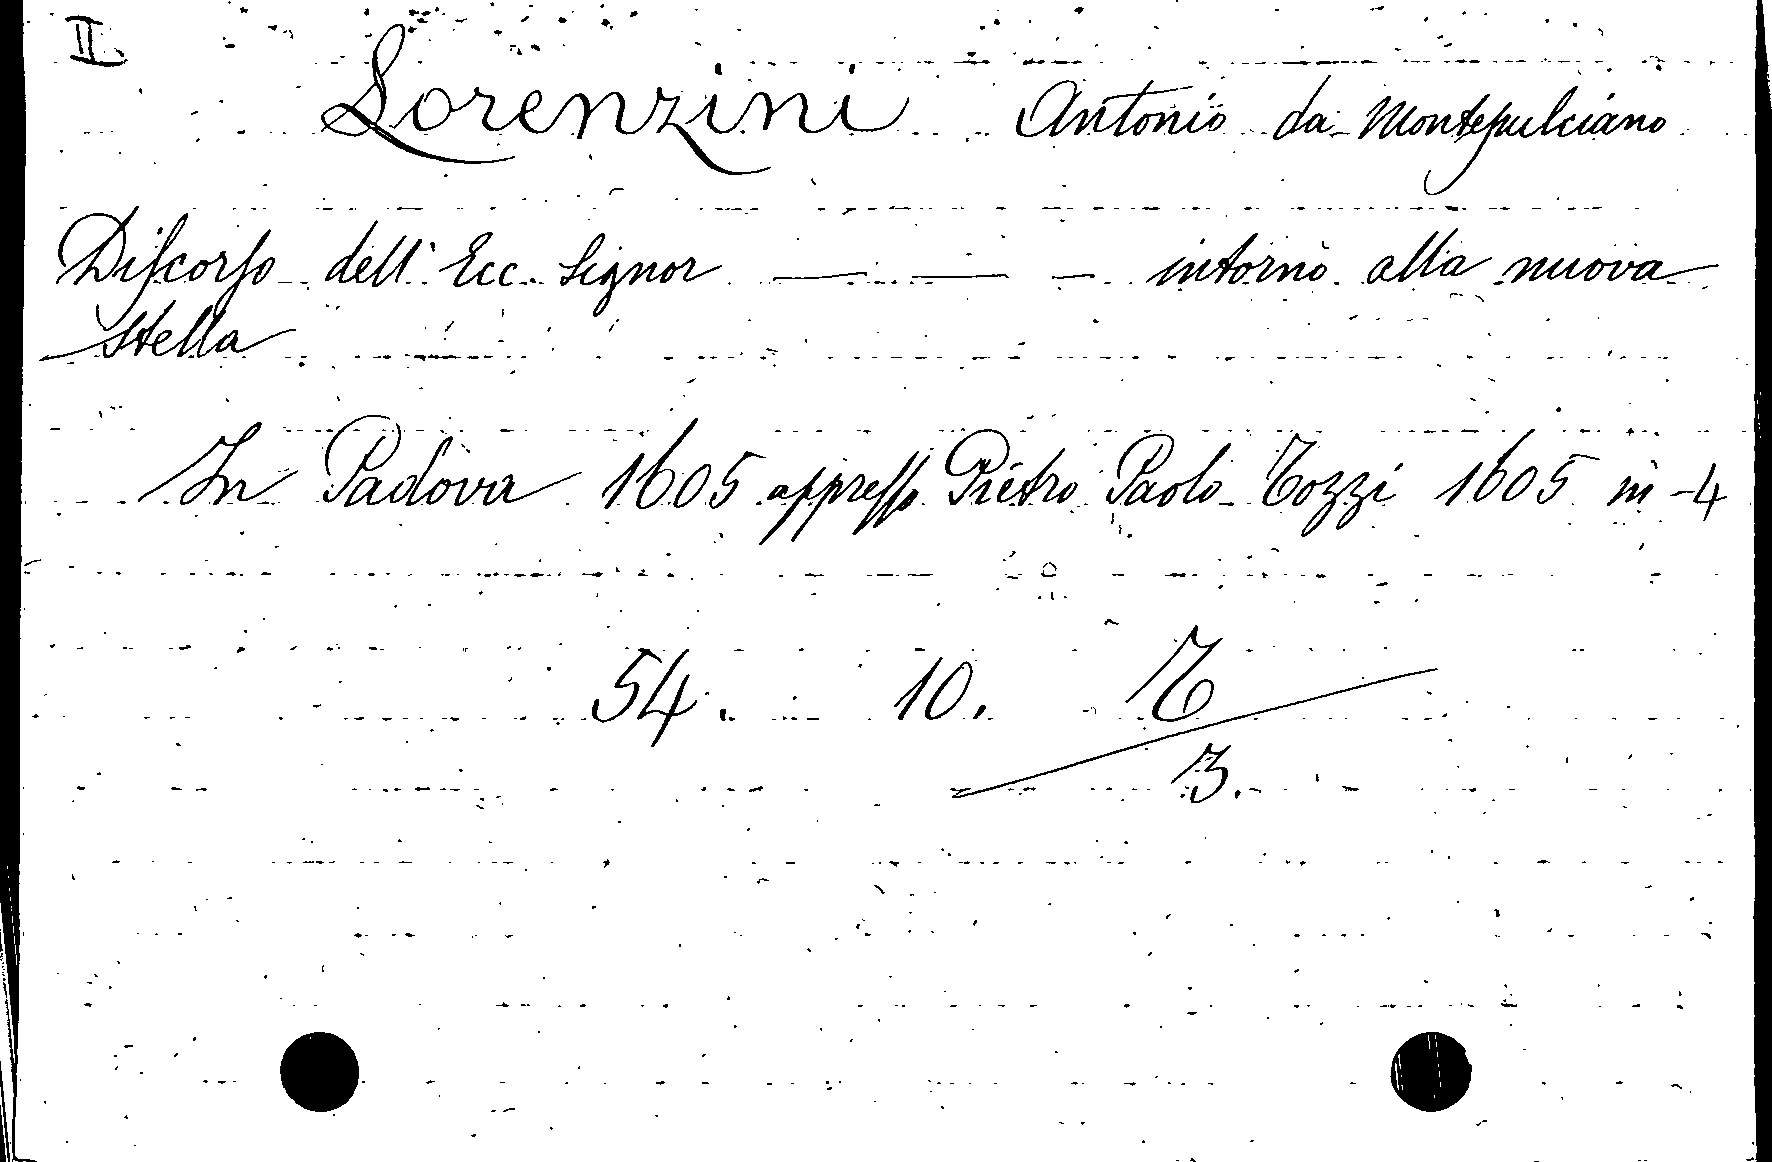 II.
Lorenzini Antonio da Montepulciano
Diſcorſo dell' Ecc. Signor — — — intorno alla nuova
stella
In Padova 1605 appreſſo Pietro Paolo Tozzi 1605 in-4
54. 10. 7
3.